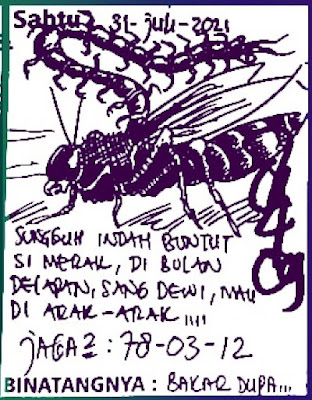 Sabtu, 31-JULI-2021
SUNGGUH INDAH BUNTUT
SI MERAK, DI BULAN
DELAPAN, SANG DEWI, MAU
DI ARAK-ARAK....
JAGA2 : 78-03-12
BINATANGNYA : BAKAR DUPA...